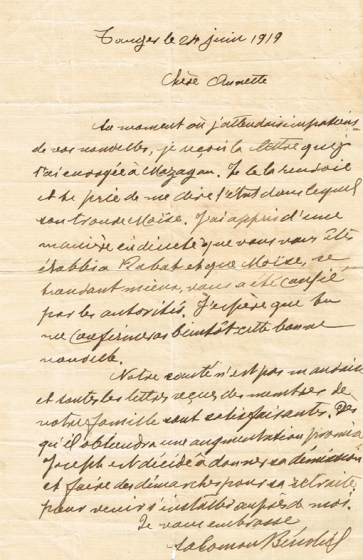 Tanger le 24 juin 1919
Chère Annette
Au moment où j'attendais impatiem
de vos nouvelles, je reçois la lettre que je
t'ai envoyée à Mazagan. Je te la renvoie
et te prie de me dire l'état dans lequel
se trouve Moïse. J'ai appris d'une
manière indirecte que vous vous êtes
établis à Rabat et que Moïse, se
trouvant mieux, vous a été confié
par les autorités. J'espère que tu
me confirmeras bientôt cette bonne
nouvelle.
Notre santé n'est pas mauvaise
et toutes les lettres reçues des membres de
notre famille sont satisfaisantes. Dès
qu'il obtiendra une augmentation promise
Joseph est décidé à donner sa démission
et faire des démarches pour sa retraite
pour venir s'installer auprès de moi.
Je vous embrasse
Salomon